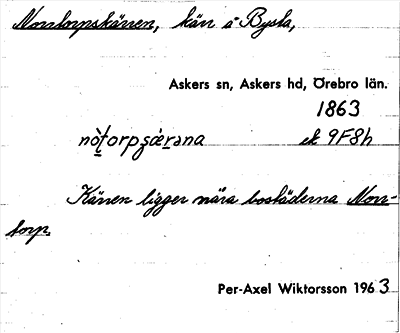 Norrtorpskärren, kärr å Bysta,
Askers sn, Askers hd, Örebro län.
1863
nòṯorpʂæ̀ṟəna ek 9F8h
Kärren ligger nära bostäderna Norr-
torp.
Per-Axel Wiktorsson 1963